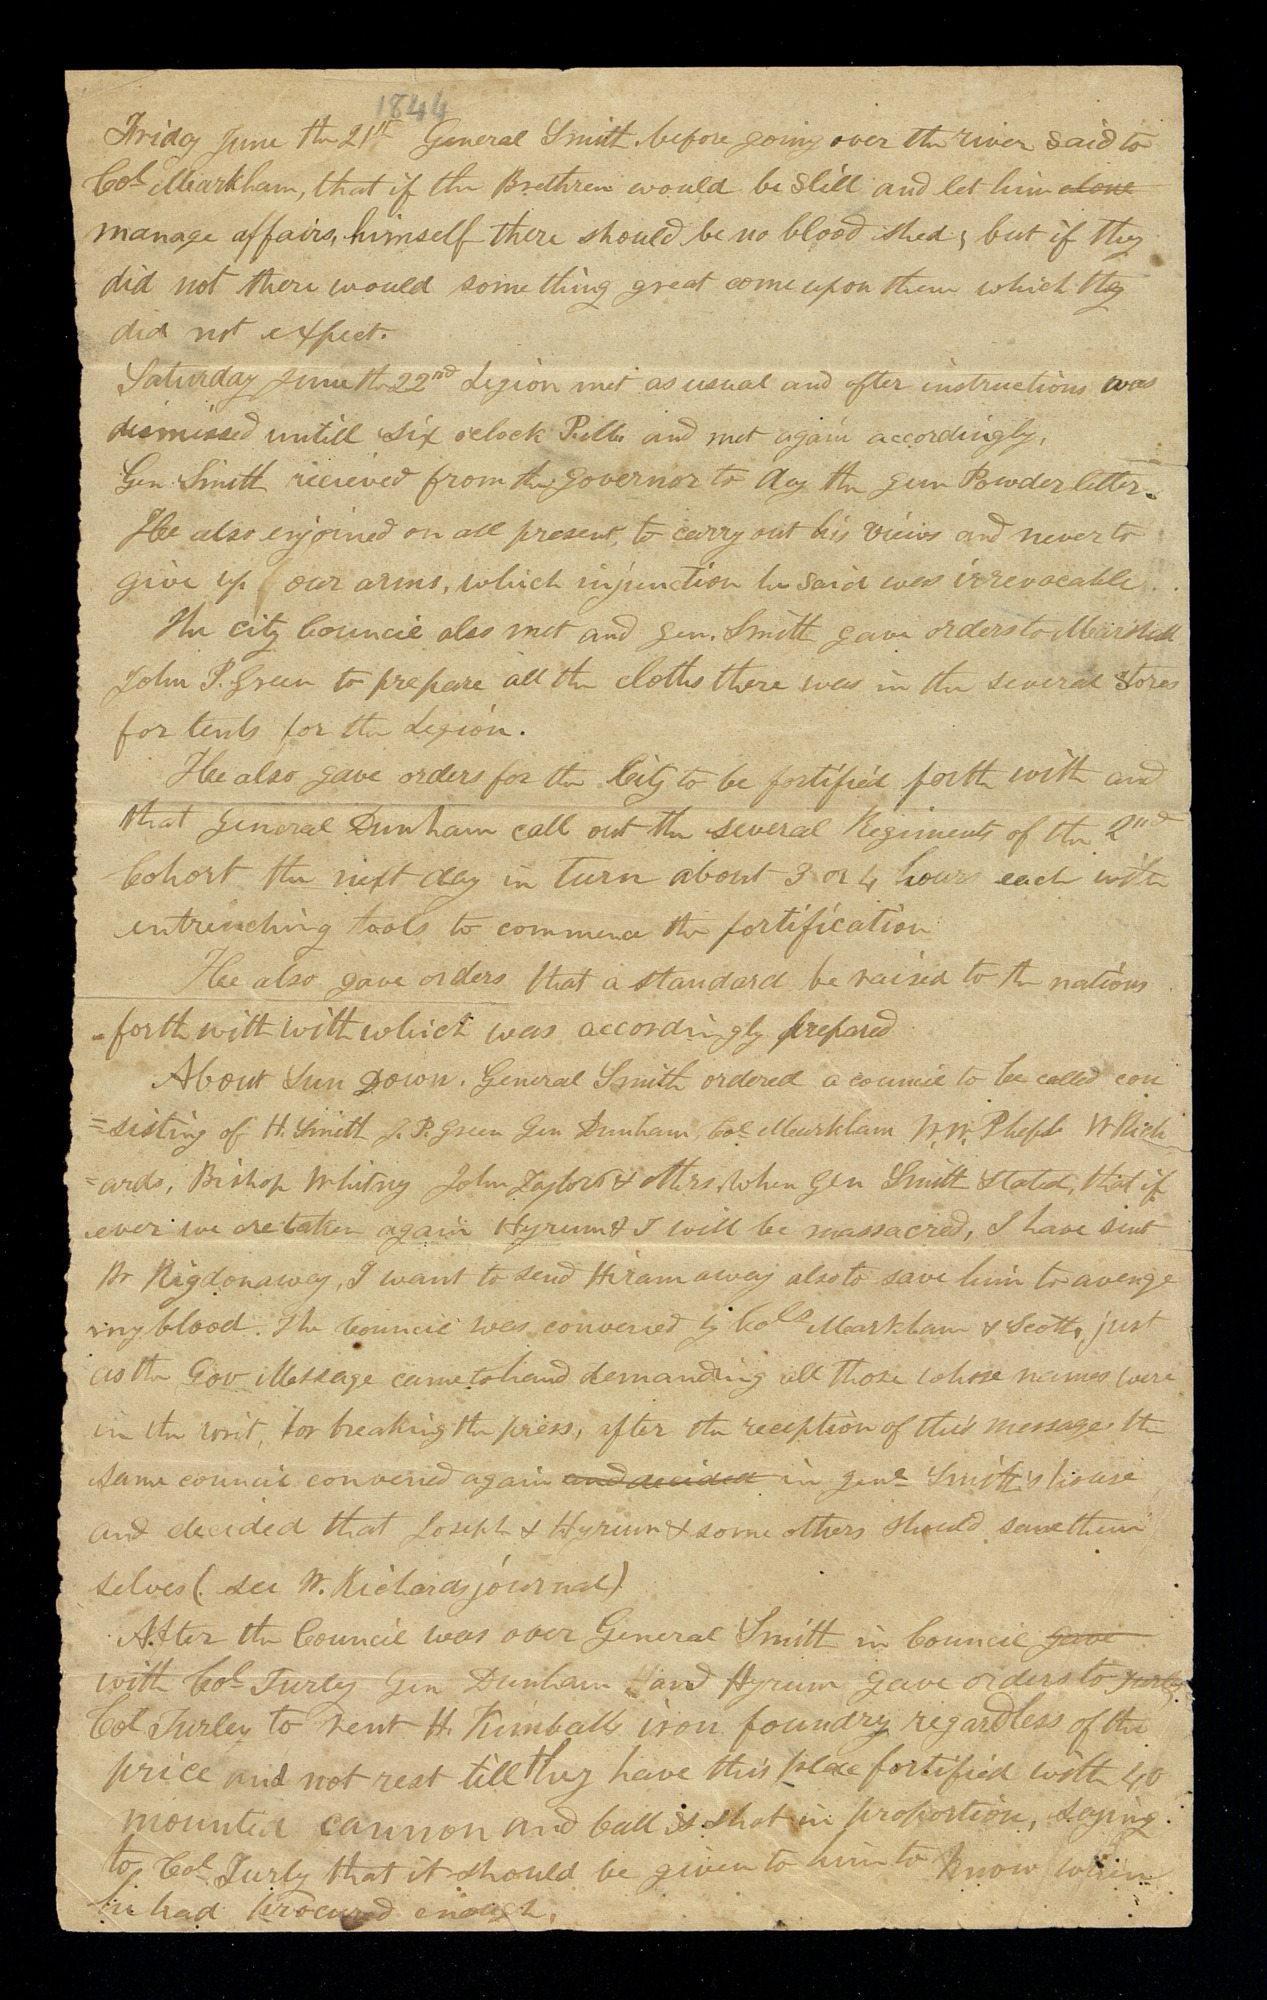 1844
Friday June the 21st General Smith before going over the river said to
Col Markham, that if the Brethren would be still and let him alone
manage affairs, himself there should be no blood shed, but if they
did not there would something great come upon them which they
did not expect.
Saturday June the 22nd Legion met as usual and after instructions was
dismissed untill six oclock and met again accordingly.
Gen Smith recieved from the governor to day the gun Powder letter.
He also enjoined on all present, to carry out his views and never to
give up our arms, which injunction he said was irrevocable
The city Council also met and gen. Smith gave orders to Marshall
John P. Green to prepare all the cloths there was in the several stores
for tents for the Legion.
He also gave orders for the City to be fortified forth with and
that General Dunham call out the several Regiments of the 2nd
Cohort the next day in turn about 3 or 4 hours each with
entrenching tools to commence the fortification
He also gave orders that a standard be raised to the nations
-forth with with which was accordingly prepared
About Sun Down. General Smith ordered a council to be called con
=sisting of H. Smith J. P. Green Gen Dunham, Col Markham W. W. Phelps W Rich
=ards, Bishop Whitney John Taylor & others, when Gen Smith stated, that if
ever we are taken again Hyrum & I will be massacred, I have sent
Br Rigdon away, I want to send Hiram away also to save him to avenge
my blood. The Council was convened by Cols Markham & Scott, just
as the Gov Message came to hand demanding all those whose names were
in the writ, for breaking the press, after the reception of this message the
same council convened again and decided in genl Smith's house
and decided that Joseph & Hyrum & some others should save them
selves (see W. Richards journal)
After the Council was over General Smith in Council gave
with Col Turley Gen Dunham and Hyrum gave orders to Turley
Col Turley to rent H. Kimballs iron foundry regardless of the
price and not rest till they have this place fortified with 40
mounted cannon and ball & shot in proportion, saying
to Col Turly that it should be given to him to know when
he had procured enough.